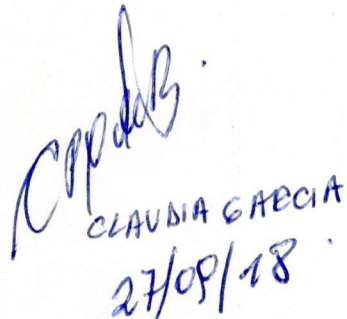 CLAUDIA GARCIA
27/09/18